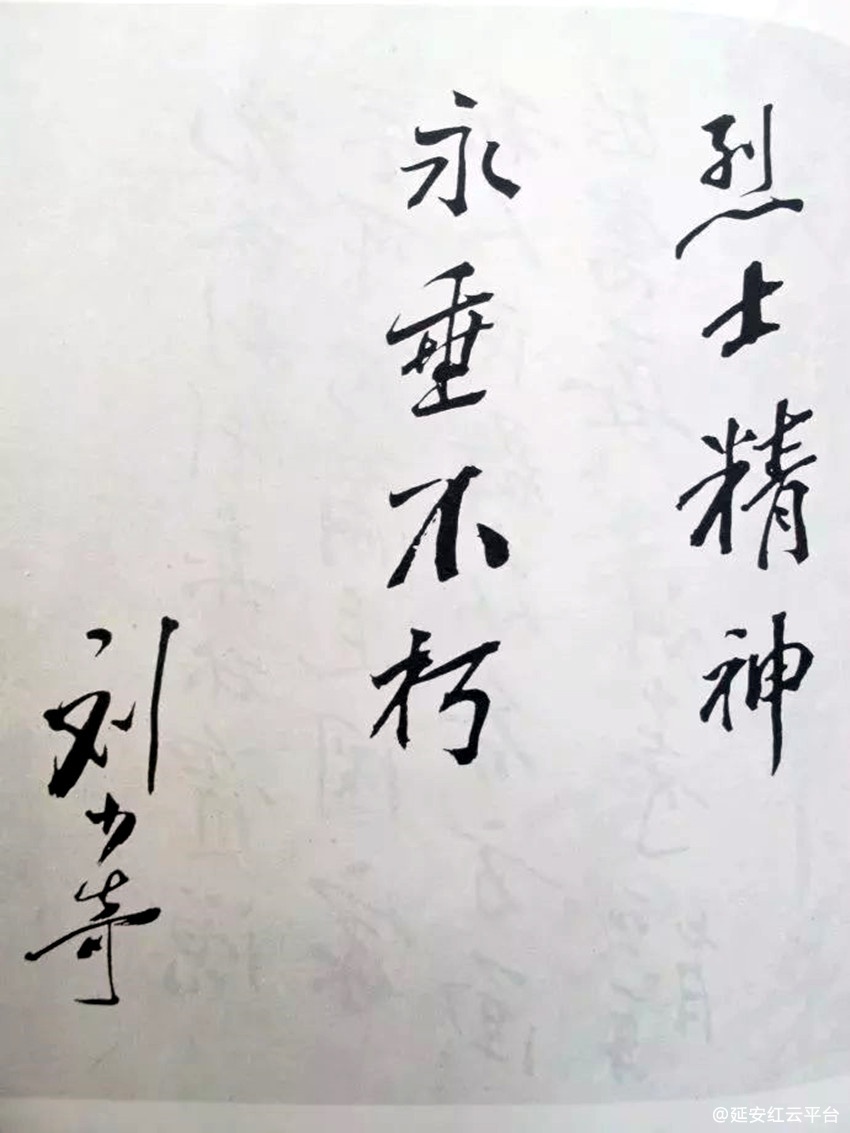 烈士精神
永垂不朽
刘少奇
@延安红云平台